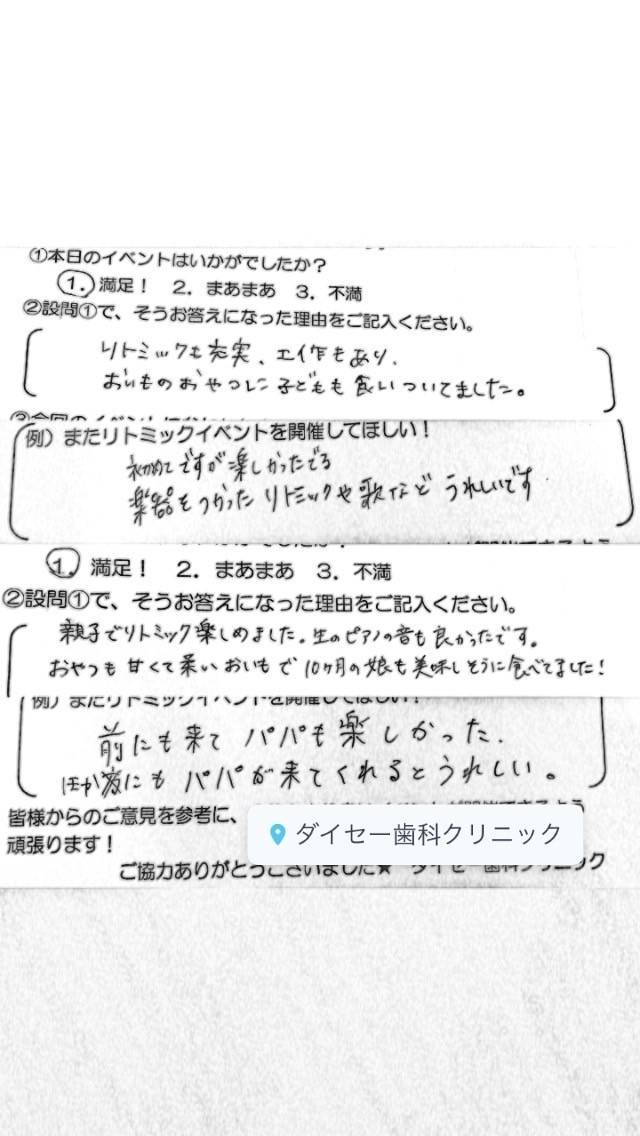 ①本日のイベントはいかがでしたか？
1. 満足！ 2. まあまあ 3. 不満
②設問①で、そうお答えになった理由をご記入ください。
リトミックも充実、工作もあり、
おいものおやつに子どもも食いついてました。
例）またリトミックイベントを開催してほしい！
初めてですが楽しかったでる
楽器をつかったリトミックや歌など うれしいです
1. 満足！ 2. まあまあ 3. 不満
②設問①で、そうお答えになった理由をご記入ください。
親子でリトミック楽しめました。生のピアノの音も良かったです。
おやつも甘くて柔いおいもで10ヶ月の娘も美味しそうに食べてました！
例）またリトミックイベントを開催してほしい！
前にも来て パパも楽しかった.
ほか にも パパが来てくれるとうれしい。
皆様からのご意見を参考に、
頑張ります！
ダイセー歯科クリニック
ご協力ありがとうございました★ ダイセー歯科クリニック